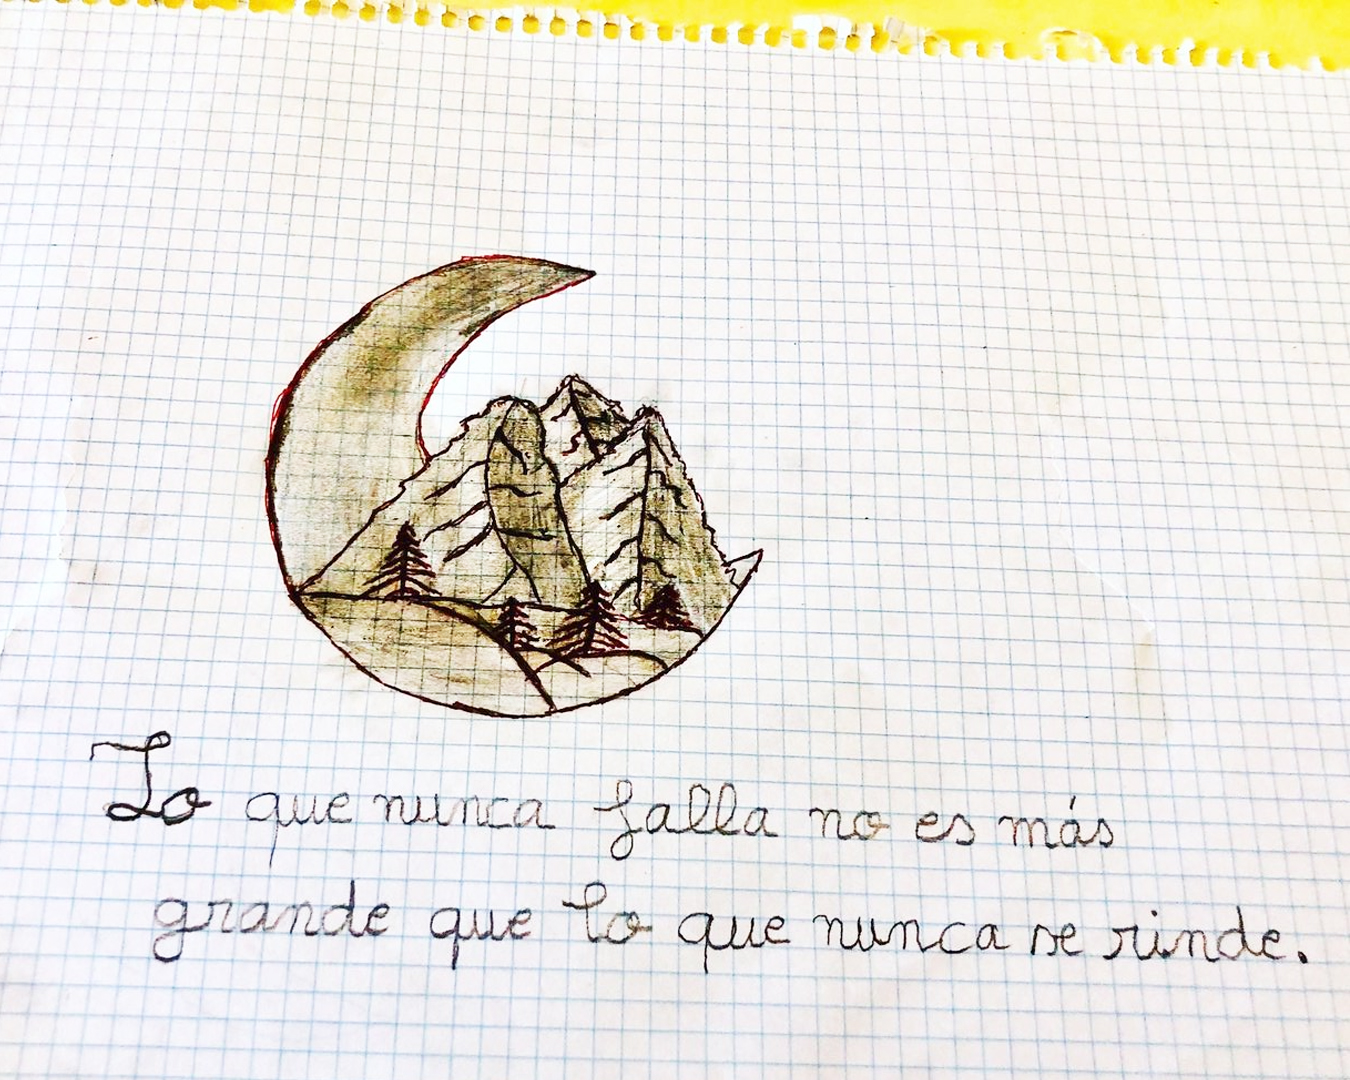 Lo que nunca falla no es más
grande que lo que nunca se rinde.